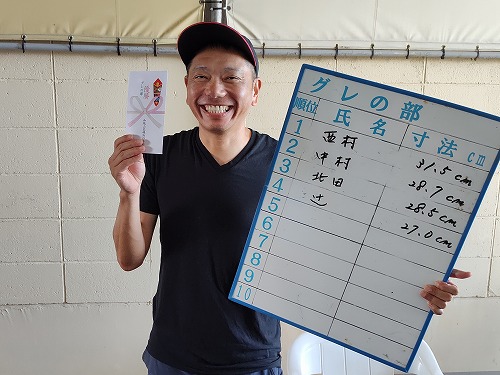 グレの部
順位 氏名 寸法 cm
1 西村 31.5cm
2 中村 28.7cm
3 北田 28.5cm
4 辻 27.0cm
5
6
7
8
9
10